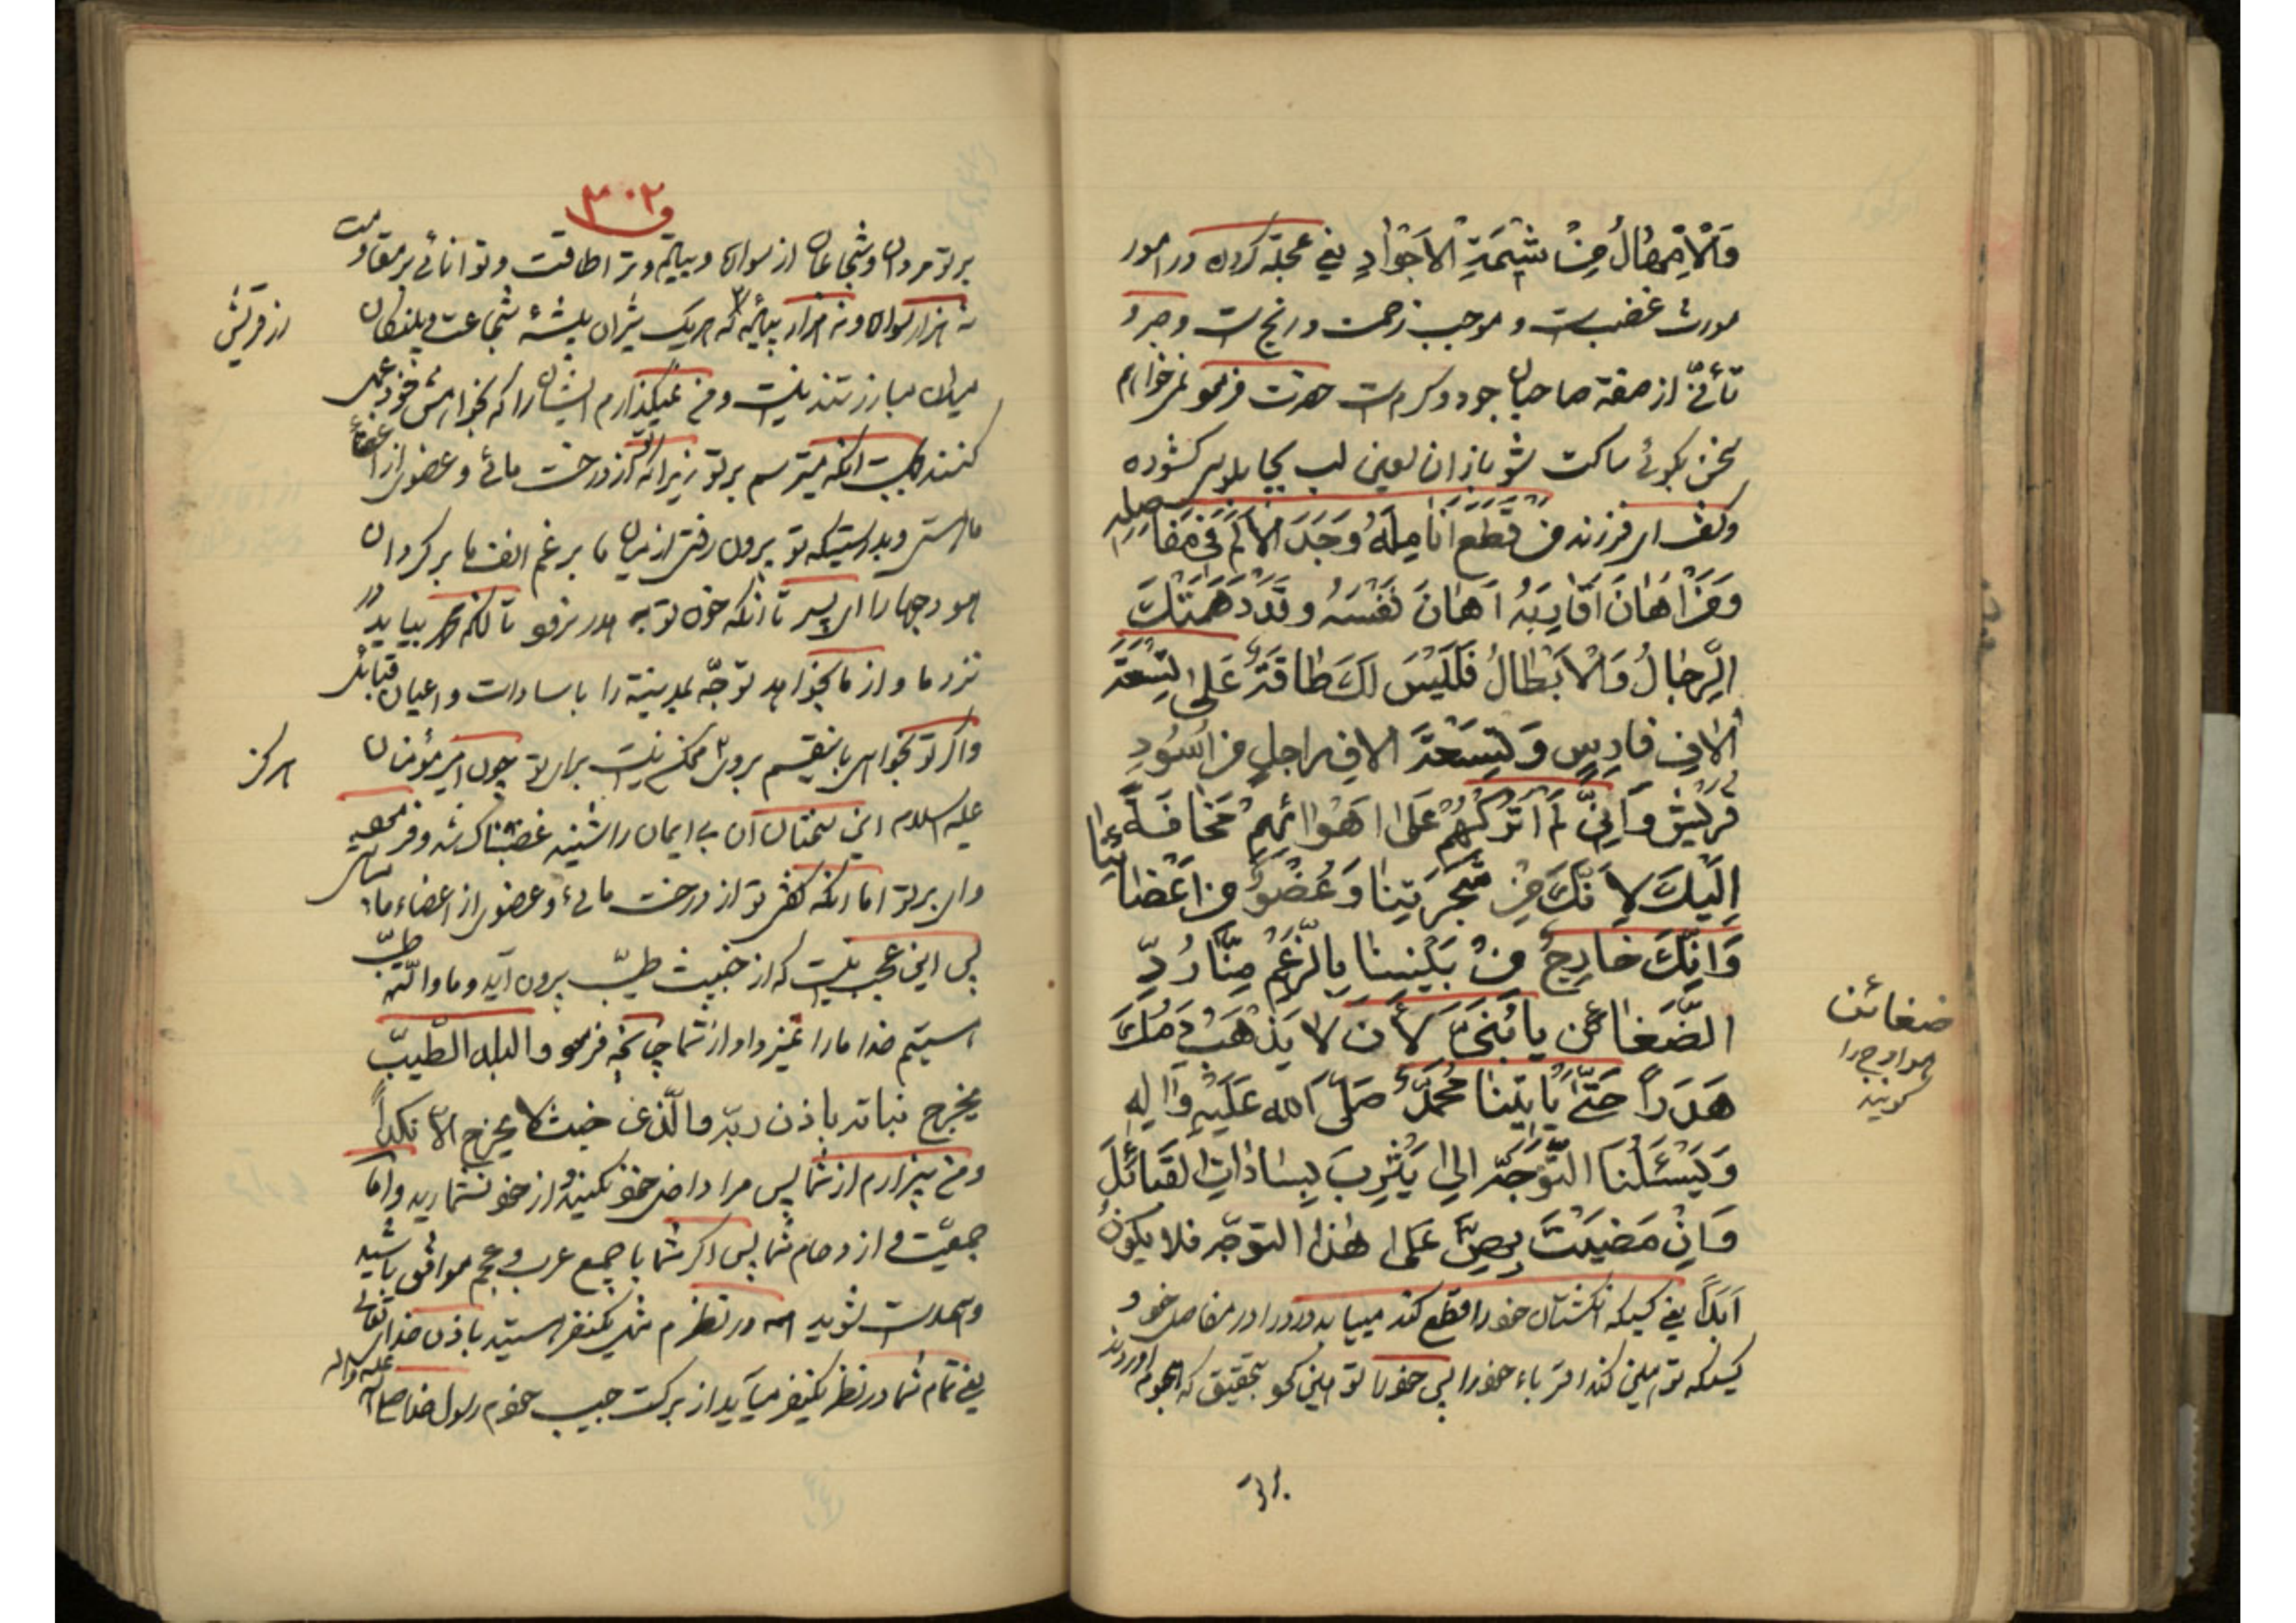 وَالْاِمْهالُ مِنْ شِیْمَةِ الْاَجْوادِ یعنی عجله کردن در امور
مورث غضبست و موجب زحمت و رنج است و صبر و
تأنّی از صفة صاحبان جود و کرم است حضرت فرمود نمیخواهم
سخن بگوئی ساکت شو باز ان لعین لب بجا بلوسی کشوده
وگفت ای فرزند من قَطَعَ اَنامِلَهُ وَجَدَ الْاَلَمَ فی مَفاصِلِهِ
وَمَنْ اَهانَ اَقارِبَهُ اَهانَ نَفْسَهُ وقَدْ دَهَمَتْكَ
الرِّجالُ وَالْاَبْطالُ فَلَیْسَ لَكَ طاقَةٌ عَلی تِسْعَةِ
الافِ فارِسٍ وَتِسْعَةِ الافِ راجِلٍ مِنْ اُسُودِ
قُرَیْشٍ وَاِنّی لَمْ اَتْرُكْهُمْ عَلی اَهْوائِهِمْ مَخافَةً
اِلَیْكَ لِاَنَّكَ مِنْ شَجَرَتِنا وَعُضْوٌ مِنْ اَعْضائِنا
وَاِنَّكَ خارِجٌ مِنْ بَیْنِنا بِالرَّغْمِ مِنّا رُدَّ
الضَّغائِنَ یا بُنَیَّ لِاَنْ لا یَذْهَبَ دَمُكَ
هَدَراً حَتّی یَاْتِیَنا مُحَمَّدٌ صَلَّی الله عَلَیْهِ وَآلِهِ
وَیَسْئَلُنَا التَّوَجُّهَ اِلی یَثْرِبَ بِساداتِ القَبائِلِ
وَاِنْ مَضَیْتَ بِهِنَّ عَلی هٰذا التوجّه فلا یَکونُ
اَبَداً یعنی کسیکه انکشتان خود را قطع کند مییابد درد را در مفاصل خود و
کسیکه توهین کند اقرباء خود را پس خود را توهین کرده بتحقیق که هجوم اوردند
ضغائن
هوادج را
کویند
بر تو
٣٠٢
بر تو مردان وشجاعان از سواره و پیاده وترا طاقت و توانائی بر مقاومت
نه هزار سواره و نه هزار پیاده که هریک شیران بیشهٔ شجاعت و پلنکان
از قریش
میدان مبارزتند نیست و من نمیکذارم ایشان را که بخواهش خود عمل
کنند بجهت انکه میترسم بر تو زیرا که تو از درخت مائی و عضوی از اعضاء
ماهستی و بدرستیکه تو بیرون رفتی از میان ما بر غم انف ما بر کردان
هودجها را ای پسر تا انکه خون تو به هدر نرود تا انکه محمّد بیاید در
نزد ما و از ما بخواهد توجّه بمدینه را با سادات و اعیان قبائل
واکر تو بخواهی باینقسم بروی ممکن نیست برای تو چون امیر مؤمنان
هرکز
علیه السلام این سخنان ان بی ایمان را شنید غضبناک شد و فرمود
وای بر تو اما انکه کفتی تو از درخت مائی و عضوی از اعضاء مائی
پس این عجب نیست که از خبیث طیّب بیرون آید و ما والله طیّب
هستیم خدا ما را تمیز داد از شما چنانچه فرمود والبلد الطّیّب
یخرج نباته باذن ربّه والّذی خبث لا یخرج الاّ نکداً
ومن بیزارم از شما پس مرا داخل خود نکنید و از خود نشمارید و امّا
جمعیّت و ازدحام شما پس اکر شما با جمیع عرب و عجم موافق باشید
وهمدست شوید همه در نظرم مثل یکنفر هستید باذن خدای تعالی
یعنی تمام شما در نظر یکنفر میآید از برکت حبیب خودم رسول خدا صلی الله علیه واله